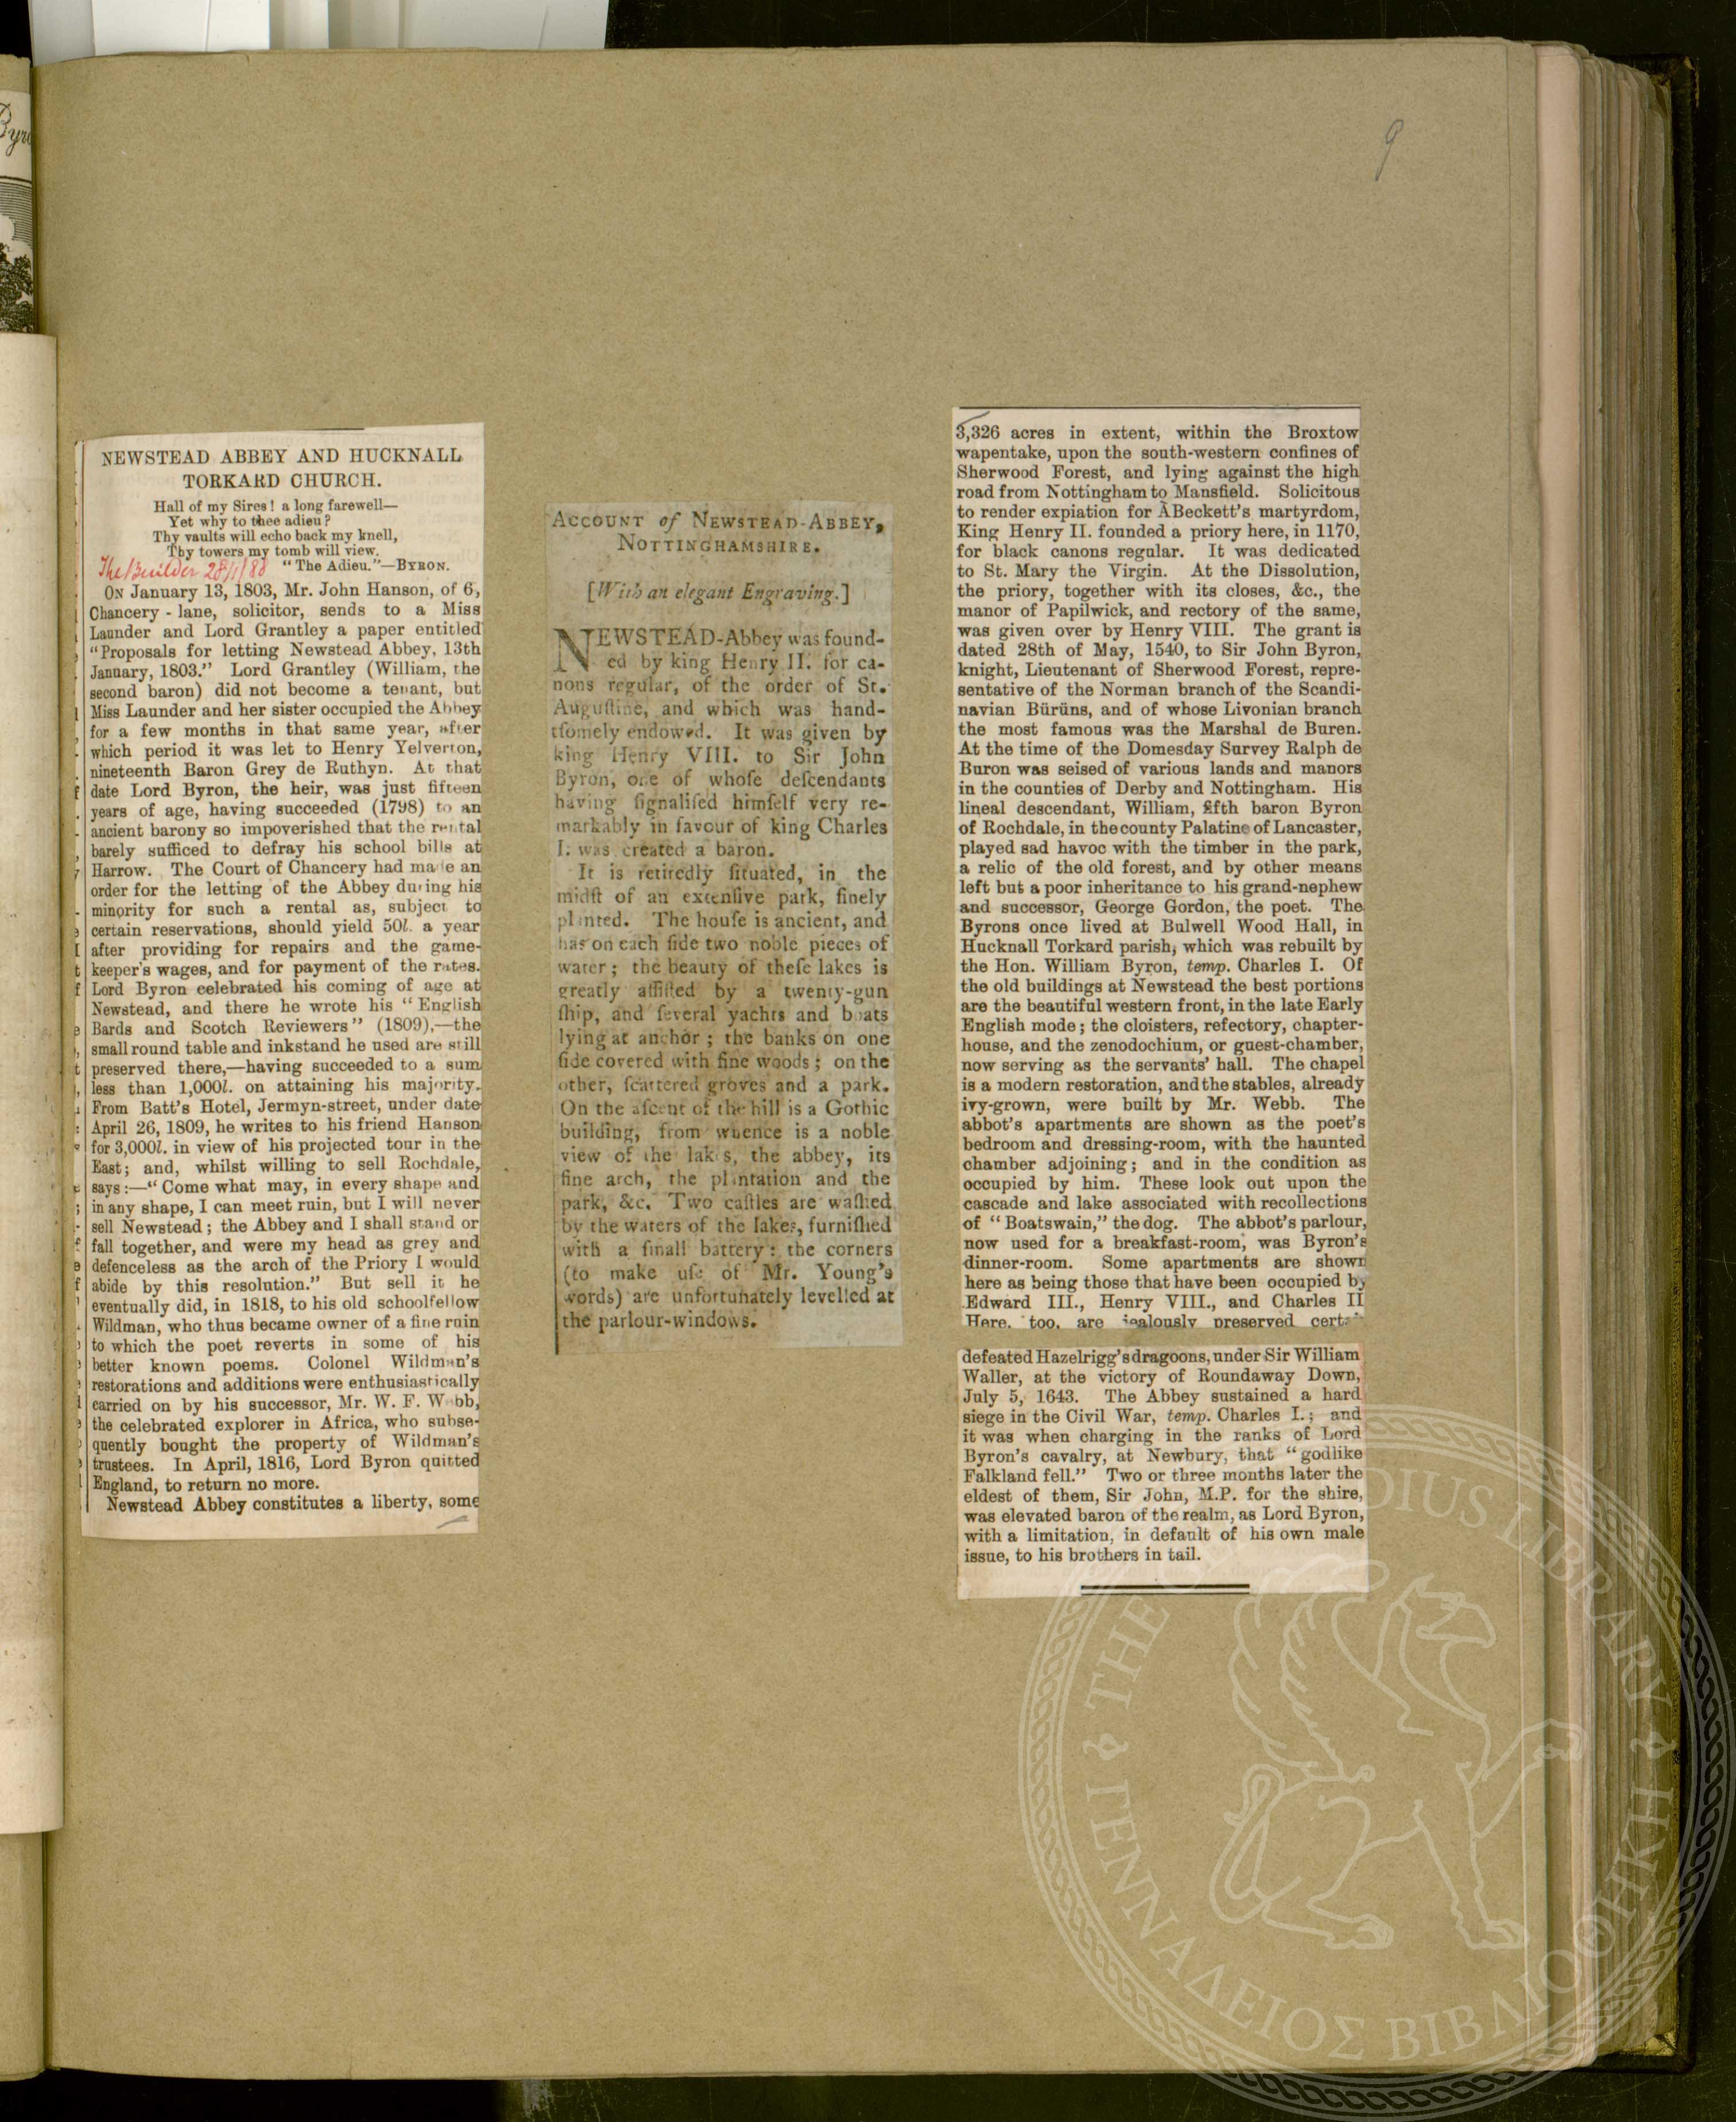 9
NEWSTEAD ABBEY AND HUCKNALL
TORKARD CHURCH.
Hall of my Sires! a long farewell—
Yet why to thee adieu?
Thy vaults will echo back my knell,
Thy towers my tomb will view.
"The Adieu."—BYRON.
The Builder 28/1/88
ON January 13, 1803, Mr. John Hanson, of 6,
Chancery-lane, solicitor, sends to a Miss
Launder and Lord Grantley a paper entitled
"Proposals for letting Newstead Abbey, 13th
January, 1803." Lord Grantley (William, the
second baron) did not become a tenant, but
Miss Launder and her sister occupied the Abbey
for a few months in that same year, after
which period it was let to Henry Yelverton,
nineteenth Baron Grey de Ruthyn. At that
date Lord Byron, the heir, was just fifteen
years of age, having succeeded (1798) to an
ancient barony so impoverished that the rental
barely sufficed to defray his school bills at
Harrow. The Court of Chancery had made an
order for the letting of the Abbey during his
minority for such a rental as, subject to
certain reservations, should yield 50l. a year
after providing for repairs and the game-
keeper's wages, and for payment of the rates.
Lord Byron celebrated his coming of age at
Newstead, and there he wrote his "English
Bards and Scotch Reviewers" (1809),—the
small round table and inkstand he used are still
preserved there,—having succeeded to a sum
less than 1,000l. on attaining his majority.
From Batt's Hotel, Jermyn-street, under date
April 26, 1809, he writes to his friend Hanson
for 3,000l. in view of his projected tour in the
East; and, whilst willing to sell Rochdale,
says:—"Come what may, in every shape and
in any shape, I can meet ruin, but I will never
sell Newstead; the Abbey and I shall stand or
fall together, and were my head as grey and
defenceless as the arch of the Priory I would
abide by this resolution." But sell it he
eventually did, in 1818, to his old schoolfellow
Wildman, who thus became owner of a fine ruin
to which the poet reverts in some of his
better known poems. Colonel Wildman's
restorations and additions were enthusiastically
carried on by his successor, Mr. W. F. Webb,
the celebrated explorer in Africa, who subse-
quently bought the property of Wildman's
trustees. In April, 1816, Lord Byron quitted
England, to return no more.
Newstead Abbey constitutes a liberty, some
ACCOUNT of NEWSTEAD-ABBEY,
NOTTINGHAMSHIRE.
[With an elegant Engraving.]
NEWSTEAD-Abbey was found-
ed by king Henry II. for ca-
nons regular, of the order of St.
Auguſtine, and which was hand-
tſomely endowed. It was given by
king Henry VIII. to Sir John
Byron, one of whoſe deſcendants
having ſignaliſed himſelf very re-
markably in favour of king Charles
I. was created a baron.
It is retiredly ſituated, in the
midſt of an extenſive park, finely
planted. The houſe is ancient, and
has on each ſide two noble pieces of
water; the beauty of theſe lakes is
greatly aſſiſted by a twenty-gun
ſhip, and ſeveral yachts and boats
lying at anchor; the banks on one
ſide covered with fine woods; on the
other, ſcattered groves and a park.
On the aſcent of the hill is a Gothic
building, from whence is a noble
view of the lakes, the abbey, its
fine arch, the plantation and the
park, &c. Two caſtles are waſhed
by the waters of the lakes, furniſhed
with a ſmall battery: the corners
(to make uſe of Mr. Young's
words) are unfortunately levelled at
the parlour-windows.
3,326 acres in extent, within the Broxtow
wapentake, upon the south-western confines of
Sherwood Forest, and lying against the high
road from Nottingham to Mansfield. Solicitous
to render expiation for ÀBeckett's martyrdom,
King Henry II. founded a priory here, in 1170,
for black canons regular. It was dedicated
to St. Mary the Virgin. At the Dissolution,
the priory, together with its closes, &c., the
manor of Papilwick, and rectory of the same,
was given over by Henry VIII. The grant is
dated 28th of May, 1540, to Sir John Byron,
knight, Lieutenant of Sherwood Forest, repre-
sentative of the Norman branch of the Scandi-
navian Bürüns, and of whose Livonian branch
the most famous was the Marshal de Buren.
At the time of the Domesday Survey Ralph de
Buron was seised of various lands and manors
in the counties of Derby and Nottingham. His
lineal descendant, William, fifth baron Byron
of Rochdale, in the county Palatine of Lancaster,
played sad havoc with the timber in the park,
a relic of the old forest, and by other means
left but a poor inheritance to his grand-nephew
and successor, George Gordon, the poet. The
Byrons once lived at Bulwell Wood Hall, in
Hucknall Torkard parish, which was rebuilt by
the Hon. William Byron, temp. Charles I. Of
the old buildings at Newstead the best portions
are the beautiful western front, in the late Early
English mode; the cloisters, refectory, chapter-
house, and the zenodochium, or guest-chamber,
now serving as the servants' hall. The chapel
is a modern restoration, and the stables, already
ivy-grown, were built by Mr. Webb. The
abbot's apartments are shown as the poet's
bedroom and dressing-room, with the haunted
chamber adjoining; and in the condition as
occupied by him. These look out upon the
cascade and lake associated with recollections
of "Boatswain," the dog. The abbot's parlour,
now used for a breakfast-room, was Byron's
dinner-room. Some apartments are shown
here as being those that have been occupied by
Edward III., Henry VIII., and Charles II
Here, too, are jealously preserved
defeated Hazelrigg's dragoons, under Sir William
Waller, at the victory of Roundaway Down,
July 5, 1643. The Abbey sustained a hard
siege in the Civil War, temp. Charles I.; and
it was when charging in the ranks of Lord
Byron's cavalry, at Newbury, that "godlike
Falkland fell." Two or three months later the
eldest of them, Sir John, M.P. for the shire,
was elevated baron of the realm, as Lord Byron,
with a limitation, in default of his own male
issue, to his brothers in tail.
THE
DIUS LIBRARY
ΓΕΝΝΑΔΕΙΟΣ ΒΙΒΛΙΟΘΗΚΗ